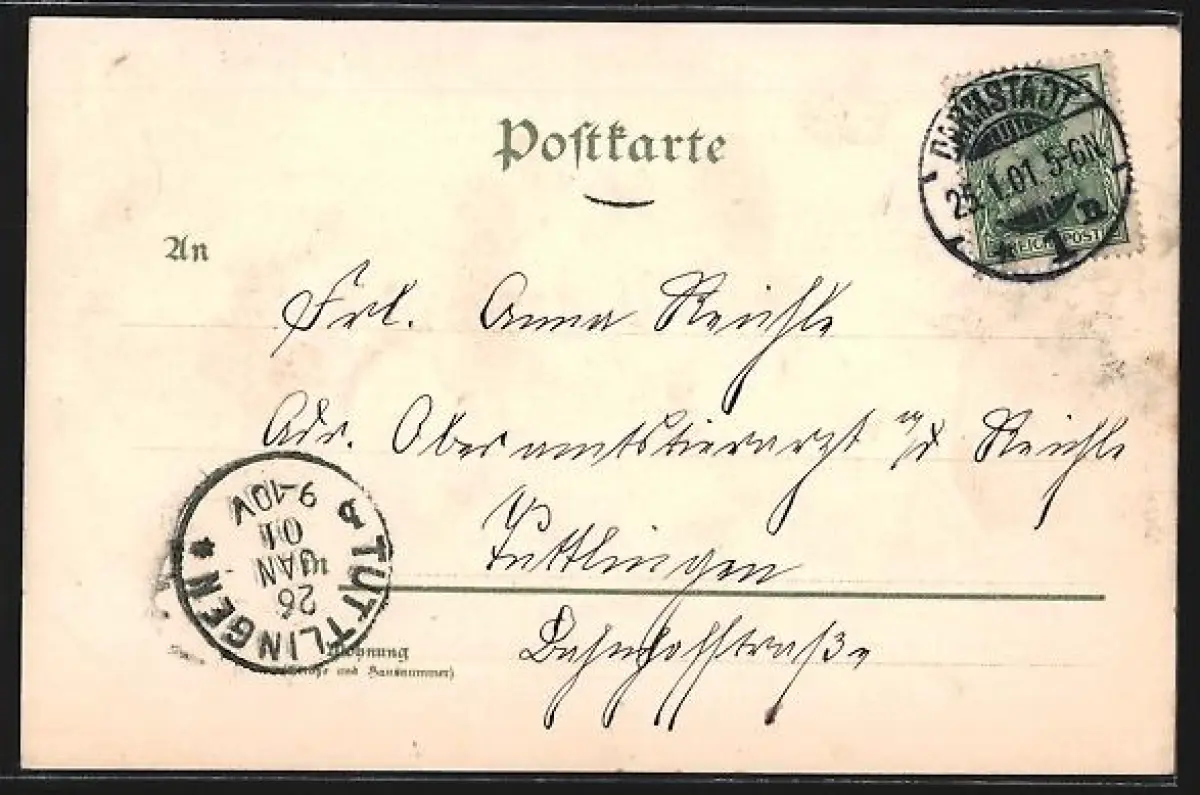 Postkarte
DARMSTADT
25.1.01.5-6N.
* 1 n
5
REICHSPOST
An
Frl. Anna Reichle
Adr. Oberamtstierarzt Reichle
Tuttlingen
Bahnhofstraße
Wohnung
(Straße und Hausnummer)
TUTTLINGEN
26
JAN
01
9-10V